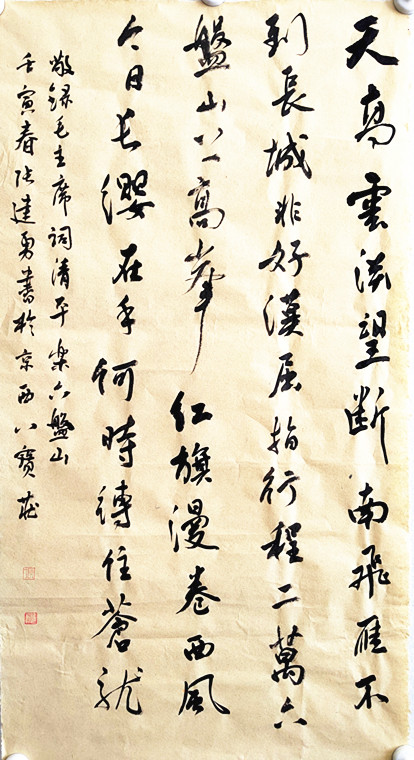 天高雲淡望断南飛雁不
到長城非好漢屈指行程二萬六
盤山上高峯 红旗漫卷西風
今日长纓在手何時縛住蒼龍
敬録毛主席詞清平樂六盤山
壬寅春张建勇書於京西八寶莊